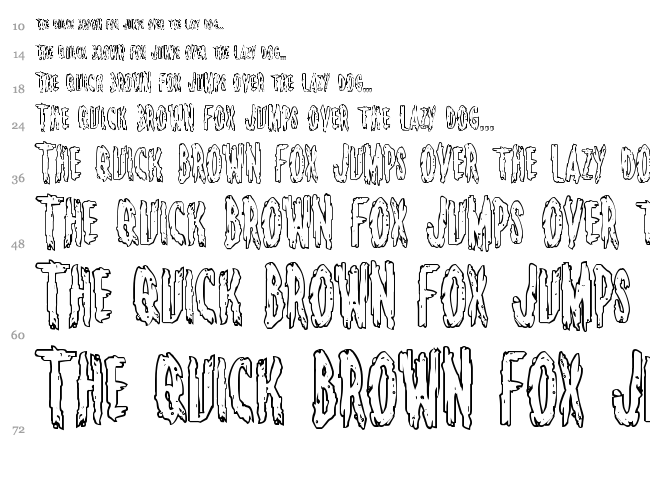 10 The quick brown fox jumps over the lazy dog...
14 The quick brown fox jumps over the lazy dog...
18 The quick brown fox jumps over the lazy dog...
24 The quick brown fox jumps over the lazy dog...
36 The quick brown fox jumps over the lazy do
48 The quick brown fox jumps over t
60 The quick brown fox jumps
72 The quick brown fox j